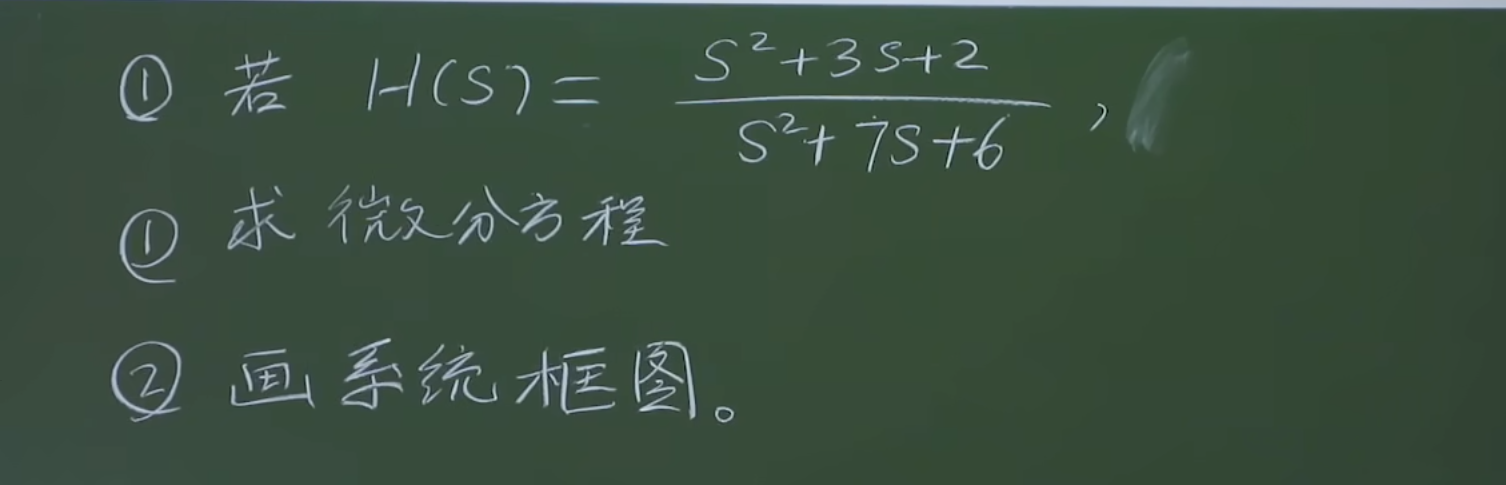 ① 若 H(S) = \frac{S^2+3S+2}{S^2+7S+6} ,
① 求微分方程
② 画系统框图。